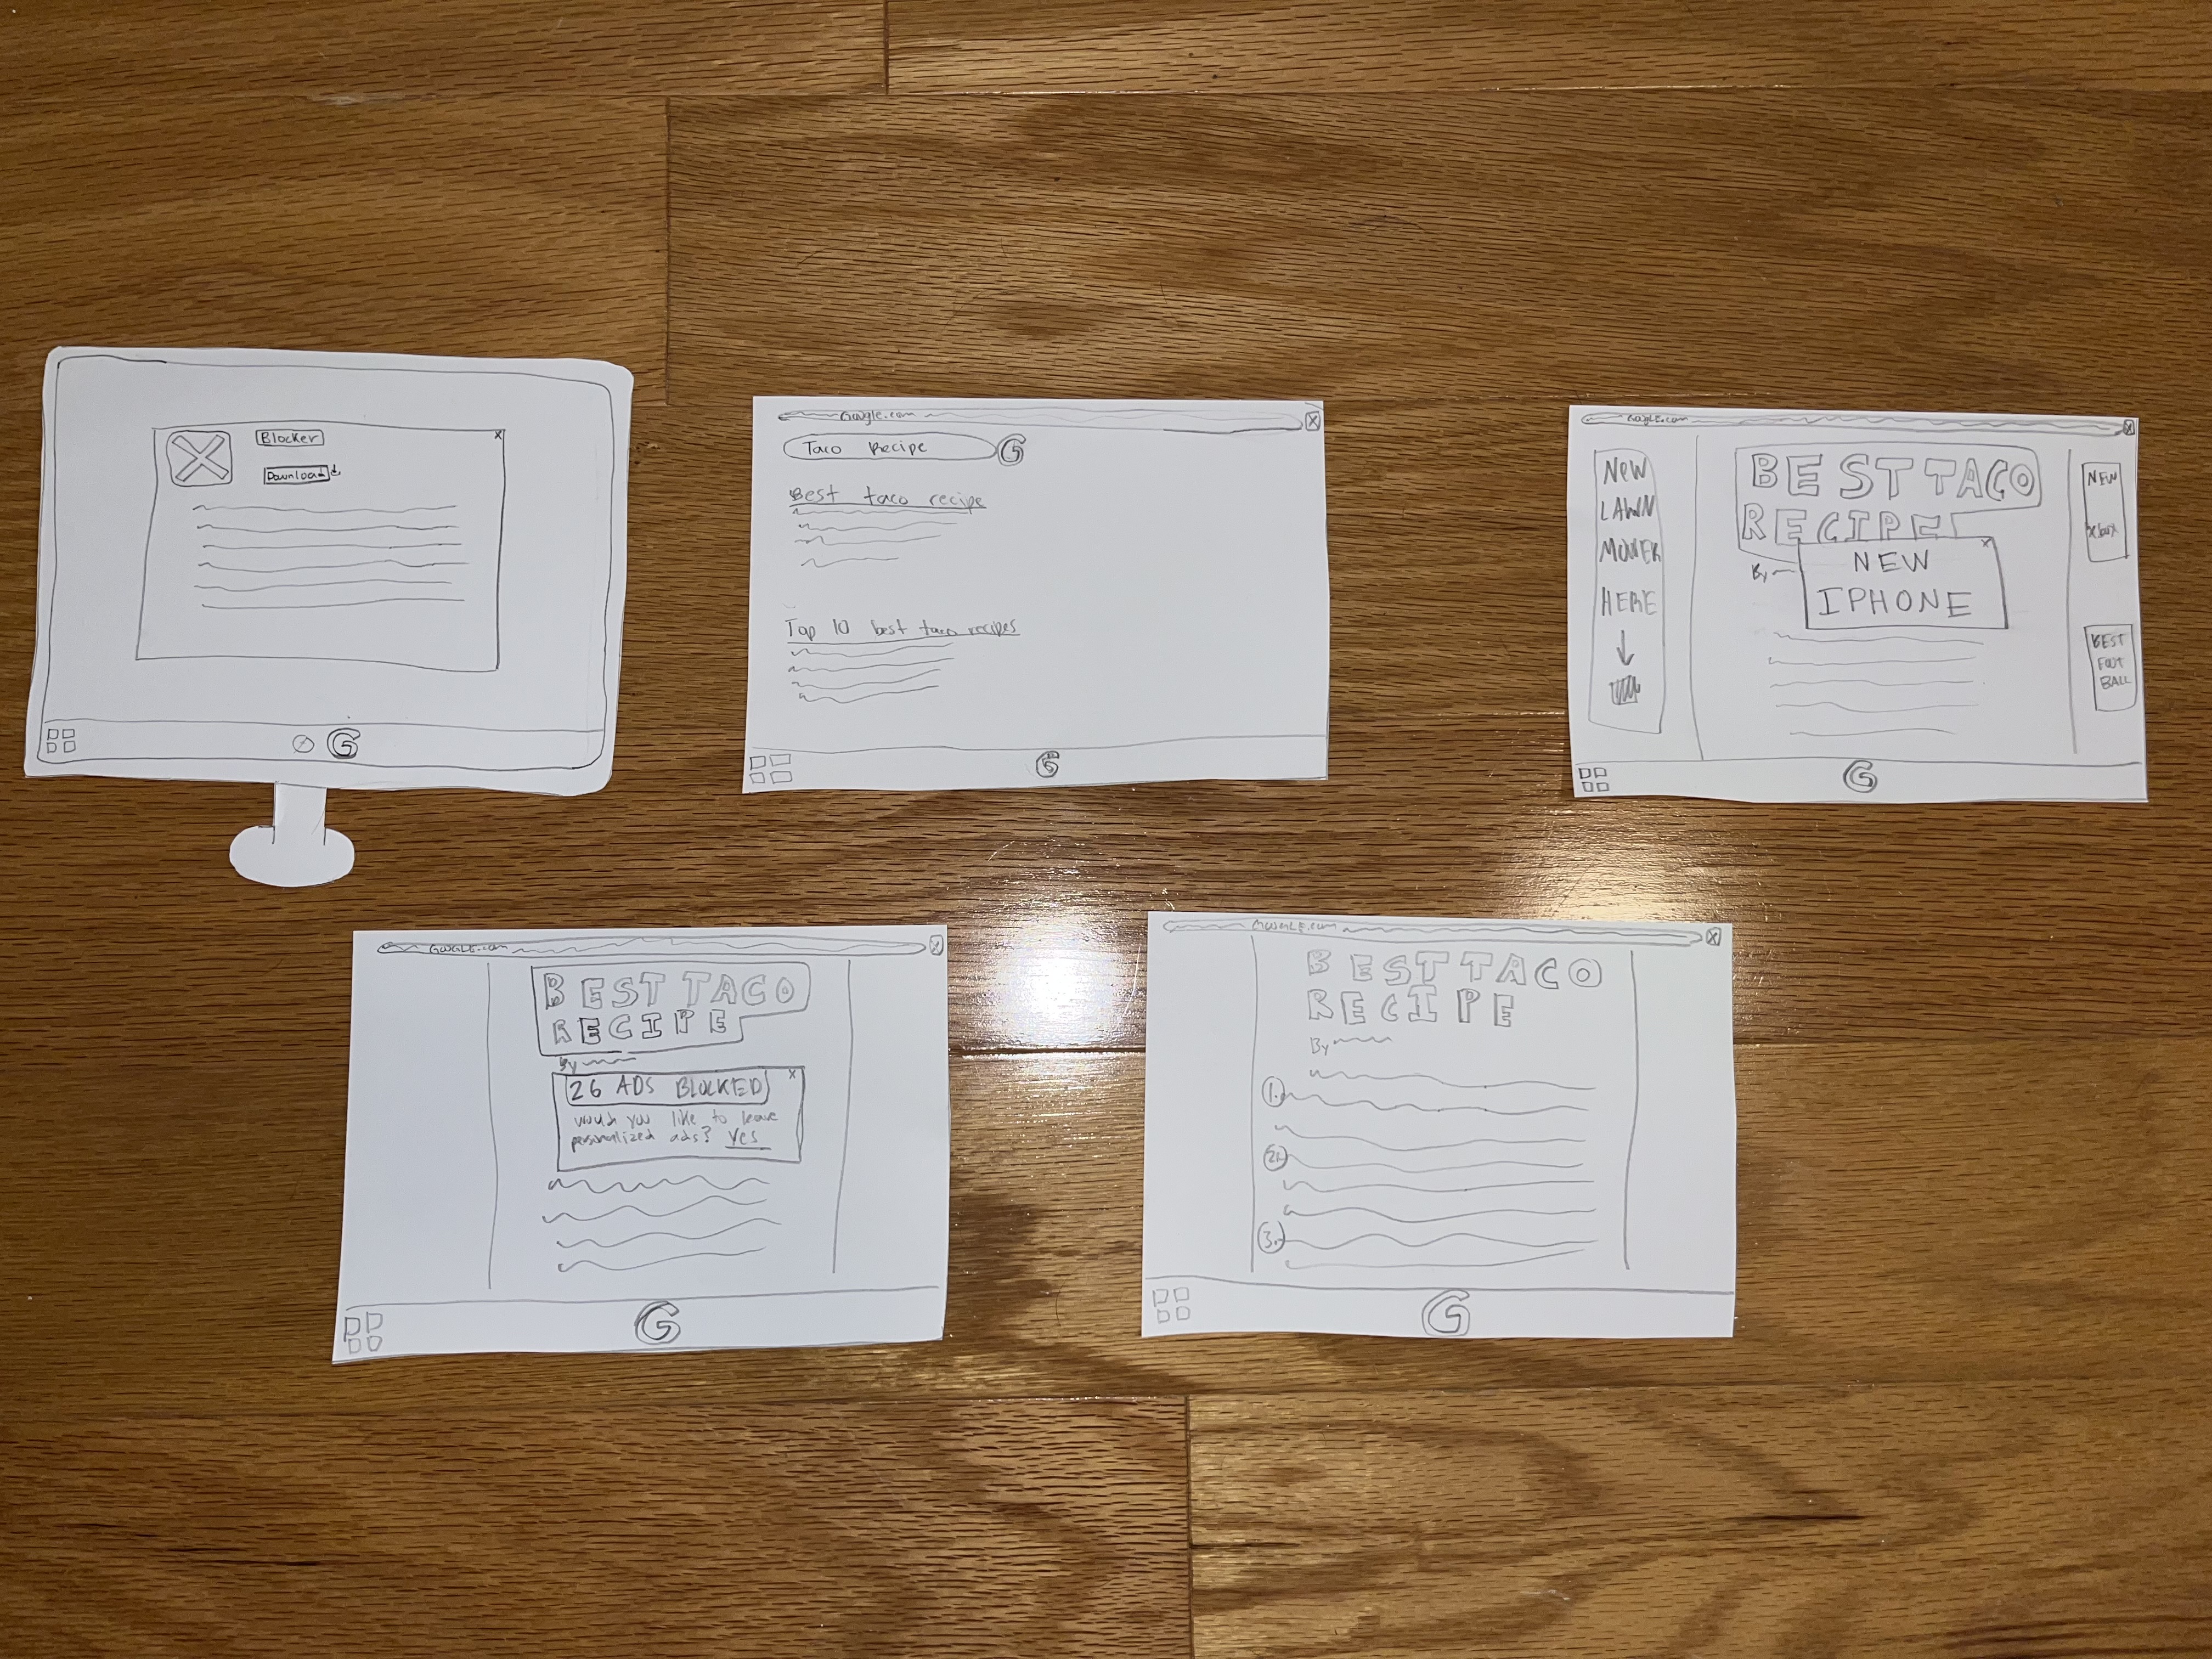 Blocker
Download
G
Google.com
X
Taco Recipe
G
Best taco recipe
Top 10 best taco recipes
G
Google.com
X
NEW
LAWN
MOWER
HERE
BEST TACO
RECIPE
By
X
NEW
IPHONE
NEW
xbox
BEST
FOOT
BALL
G
GOOGLE.com
X
BEST TACO
RECIPE
By
X
26 ADS BLOCKED
would you like to leave
personalized ads? yes
G
GOOGLE.com
X
BEST TACO
RECIPE
By
1.
2.
3.
G